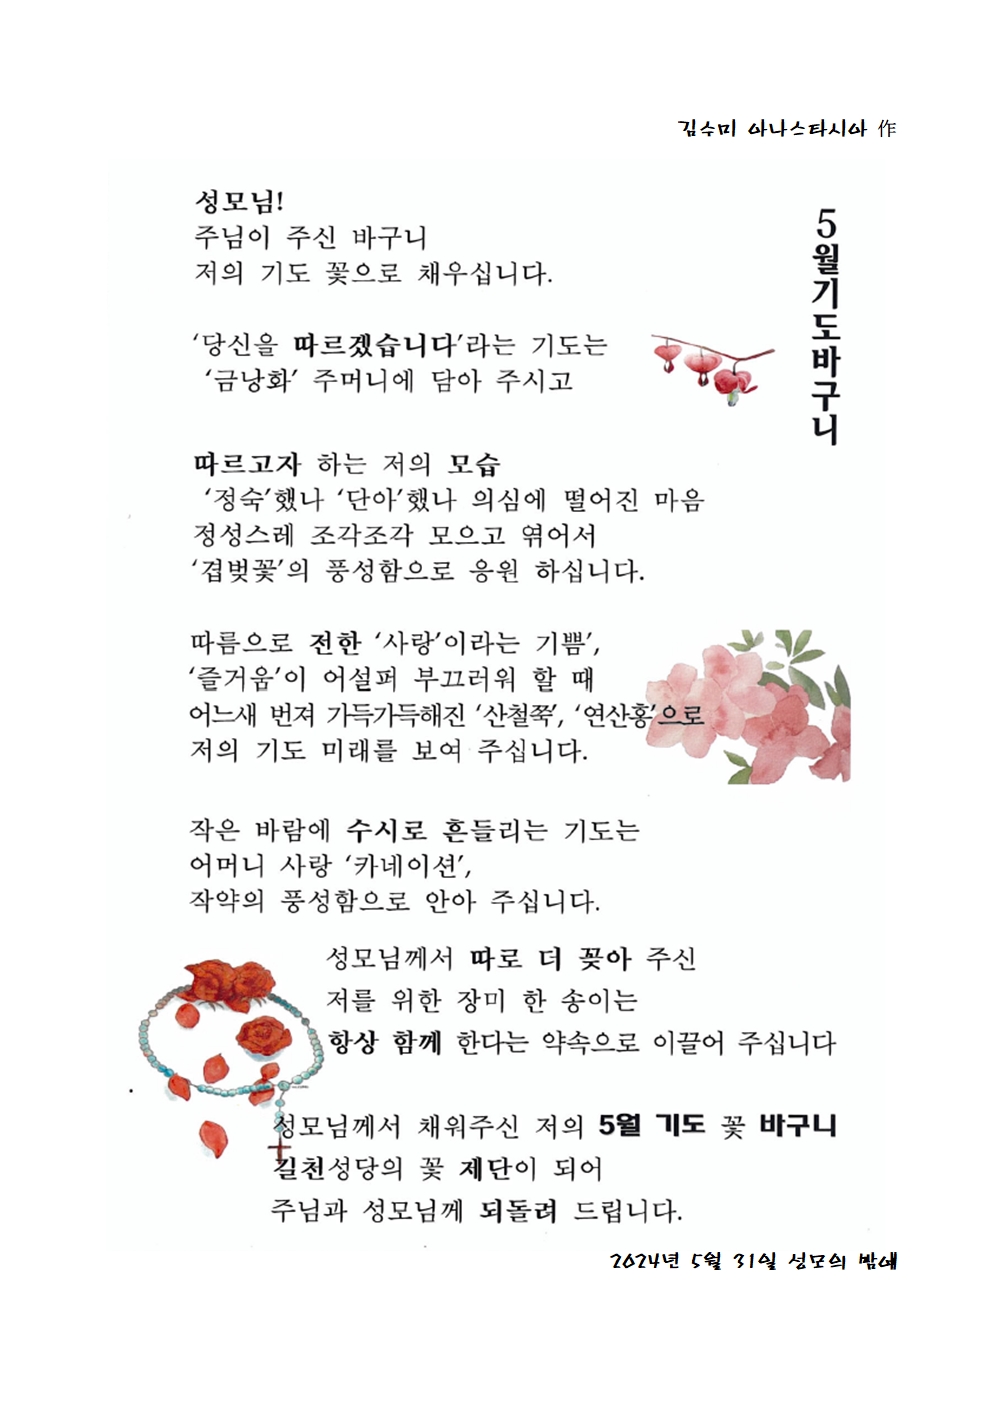 김수미 아나스타시아 作
5월기도바구니
성모님!
주님이 주신 바구니
저의 기도 꽃으로 채우십니다.
‘당신을 따르겠습니다’라는 기도는
‘금낭화’ 주머니에 담아 주시고
따르고자 하는 저의 모습
‘정숙’했나 ‘단아’했나 의심에 떨어진 마음
정성스레 조각조각 모으고 엮어서
‘겹벚꽃’의 풍성함으로 응원 하십니다.
따름으로 전한 ‘사랑’이라는 기쁨’,
‘즐거움’이 어설퍼 부끄러워 할 때
어느새 번져 가득가득해진 ‘산철쭉’, ‘연산홍’으로
저의 기도 미래를 보여 주십니다.
작은 바람에 수시로 흔들리는 기도는
어머니 사랑 ‘카네이션’,
작약의 풍성함으로 안아 주십니다.
성모님께서 따로 더 꽂아 주신
저를 위한 장미 한 송이는
항상 함께 한다는 약속으로 이끌어 주십니다
성모님께서 채워주신 저의 5월 기도 꽃 바구니
길천성당의 꽃 제단이 되어
주님과 성모님께 되돌려 드립니다.
2024년 5월 31일 성모의 밤에